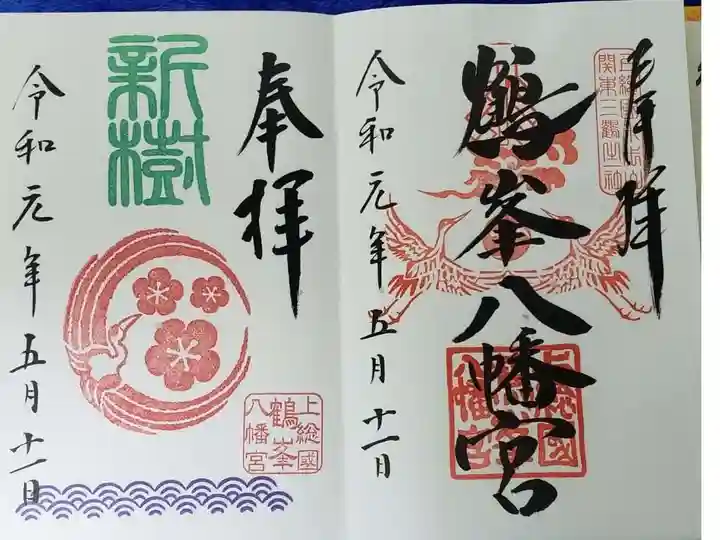 奉拝
上総國
関東三鶴之一社
鶴峯八幡宮
上総國
鶴峯
八幡宮
令和元年五月十一日
奉拝
新樹
上総國
鶴峯
八幡宮
令和元年五月十一日